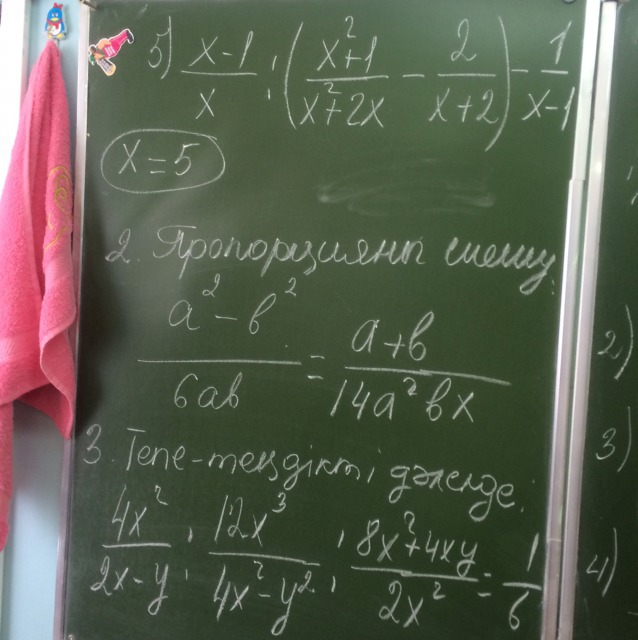 5) (x-1)/x : ((x²+1)/(x²+2x) - 2/(x+2)) - 1/(x-1)
x=5
2. Пропорцияны шешу:
(a²-b²)/(6ab) = (a+b)/(14a²bx)
3. Тепе-теңдікті дәлелде:
(4x²)/(2x-y) : (12x³)/(4x²-y²) : (8x²+4xy)/(2x²) = 1/6
2)
3)
4)